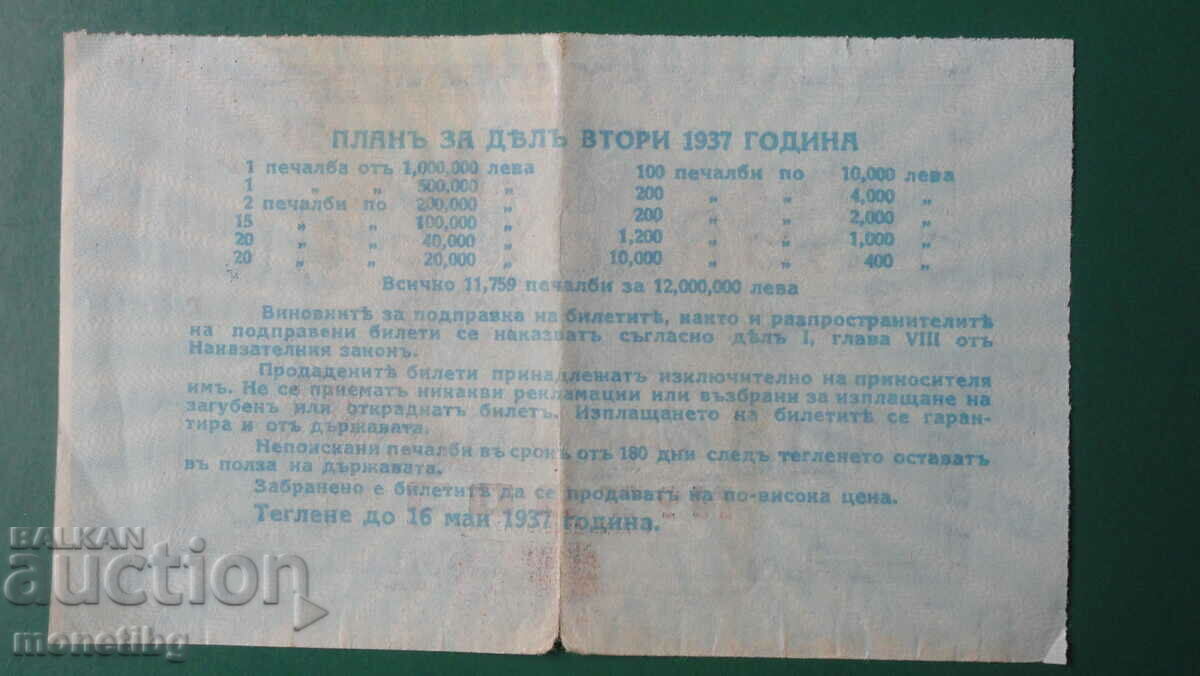 ПЛАНЪ ЗА ДѢЛЪ ВТОРИ 1937 ГОДИНА
1 печалба отъ 1,000,000 лева
1 „ „ 500,000 „
2 печалби по 200,000 „
15 „ „ 100,000 „
20 „ „ 40,000 „
20 „ „ 20,000 „
100 печалби по 10,000 лева
200 „ „ 4,000 „
200 „ „ 2,000 „
1,200 „ „ 1,000 „
10,000 „ „ 400 „
Всичко 11,759 печалби за 12,000,000 лева
Виновнитѣ за подправка на билетитѣ, както и разпространителитѣ
на подправени билети се наказватъ съгласно дѣлъ I, глава VIII отъ
Наказателния законъ.
Продаденитѣ билети принадлежатъ изключително на приносителя
имъ. Не се приематъ никакви рекламации или възбрани за изплащане на
загубенъ или откраднатъ билетъ. Изплащането на билетитѣ се гаран-
тира и отъ държавата.
Непоискани печалби въ срокъ отъ 180 дни следъ тегленето оставатъ
въ полза на държавата.
Забранено е билетитѣ да се продаватъ на по-висока цена.
Теглене до 16 май 1937 година.
BALKAN
auction
monetibg